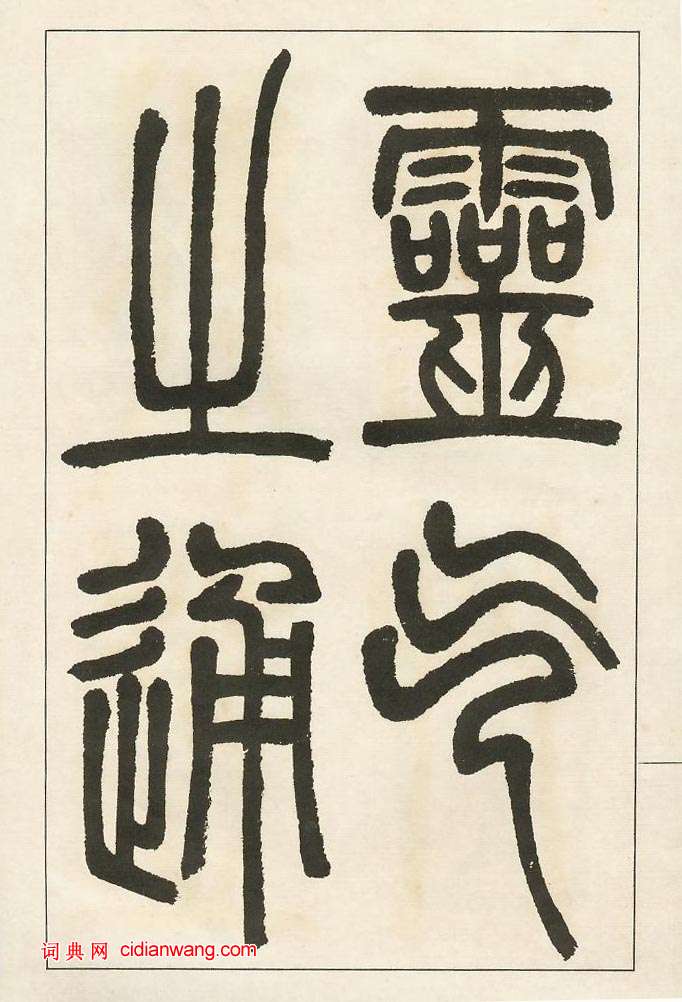 靈气
之通
词典网 cidianwang.com